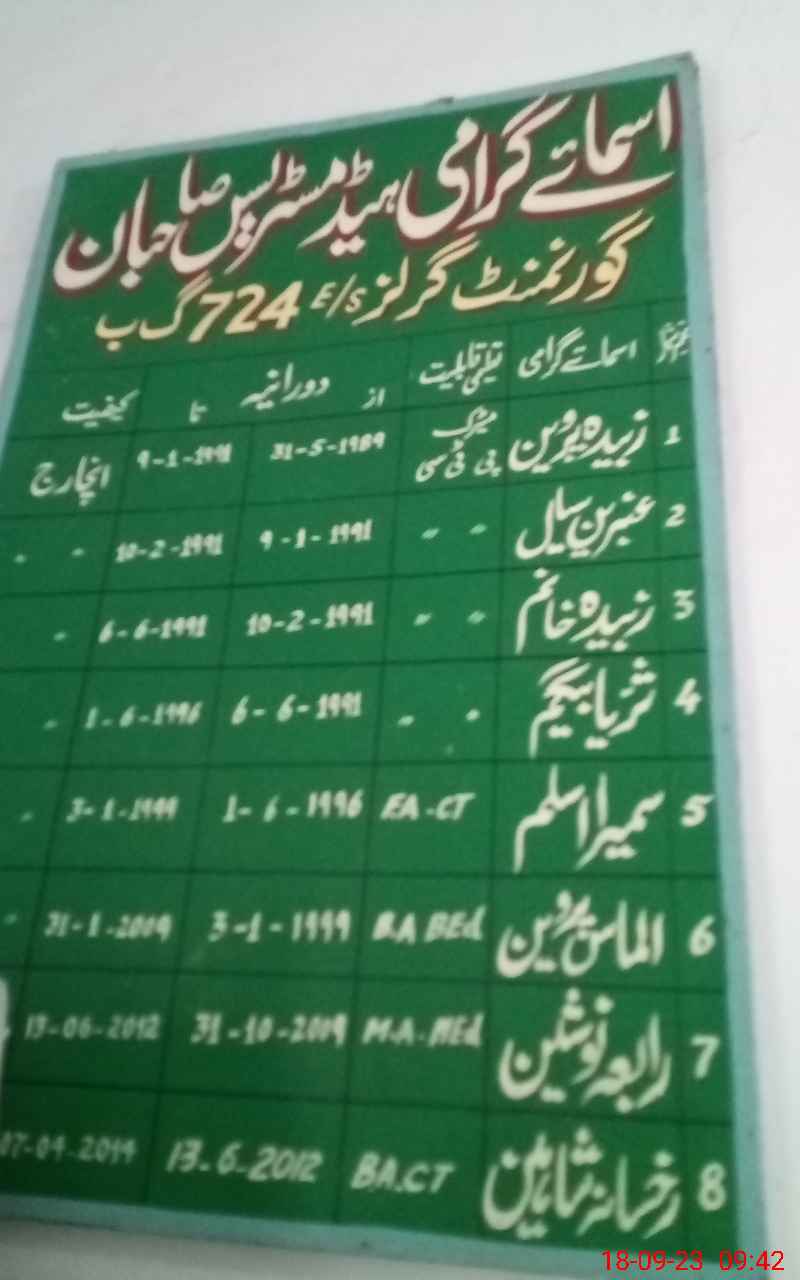 اسمائے گرامی ہیڈ مسٹریس صاحبان
گورنمنٹ گرلز E/S 724 گ ب
نمبر شمار اسمائے گرامی تعلیمی قابلیت از دورانیہ تا کیفیت
1 زبیدہ پروین میٹرک پی ٹی سی 31-5-1989 9-1-1991 انچارج
2 عنبرین سیال " " 9-1-1991 10-2-1991 " "
3 زبیدہ خانم " " 10-2-1991 6-6-1991 "
4 ثریا بیگم " " 6-6-1991 1-6-1996 "
5 سمیرا اسلم F.A-CT 1-6-1996 3-1-1999 "
6 الماس پروین B.A BEd 3-1-1999 31-1-2009 "
7 رابعہ نوشین M.A-MEd 31-10-2009 13-06-2012
8 رخسانہ شاہین B.A.CT 13-6-2012 07-04-2014
18-09-23 09:42